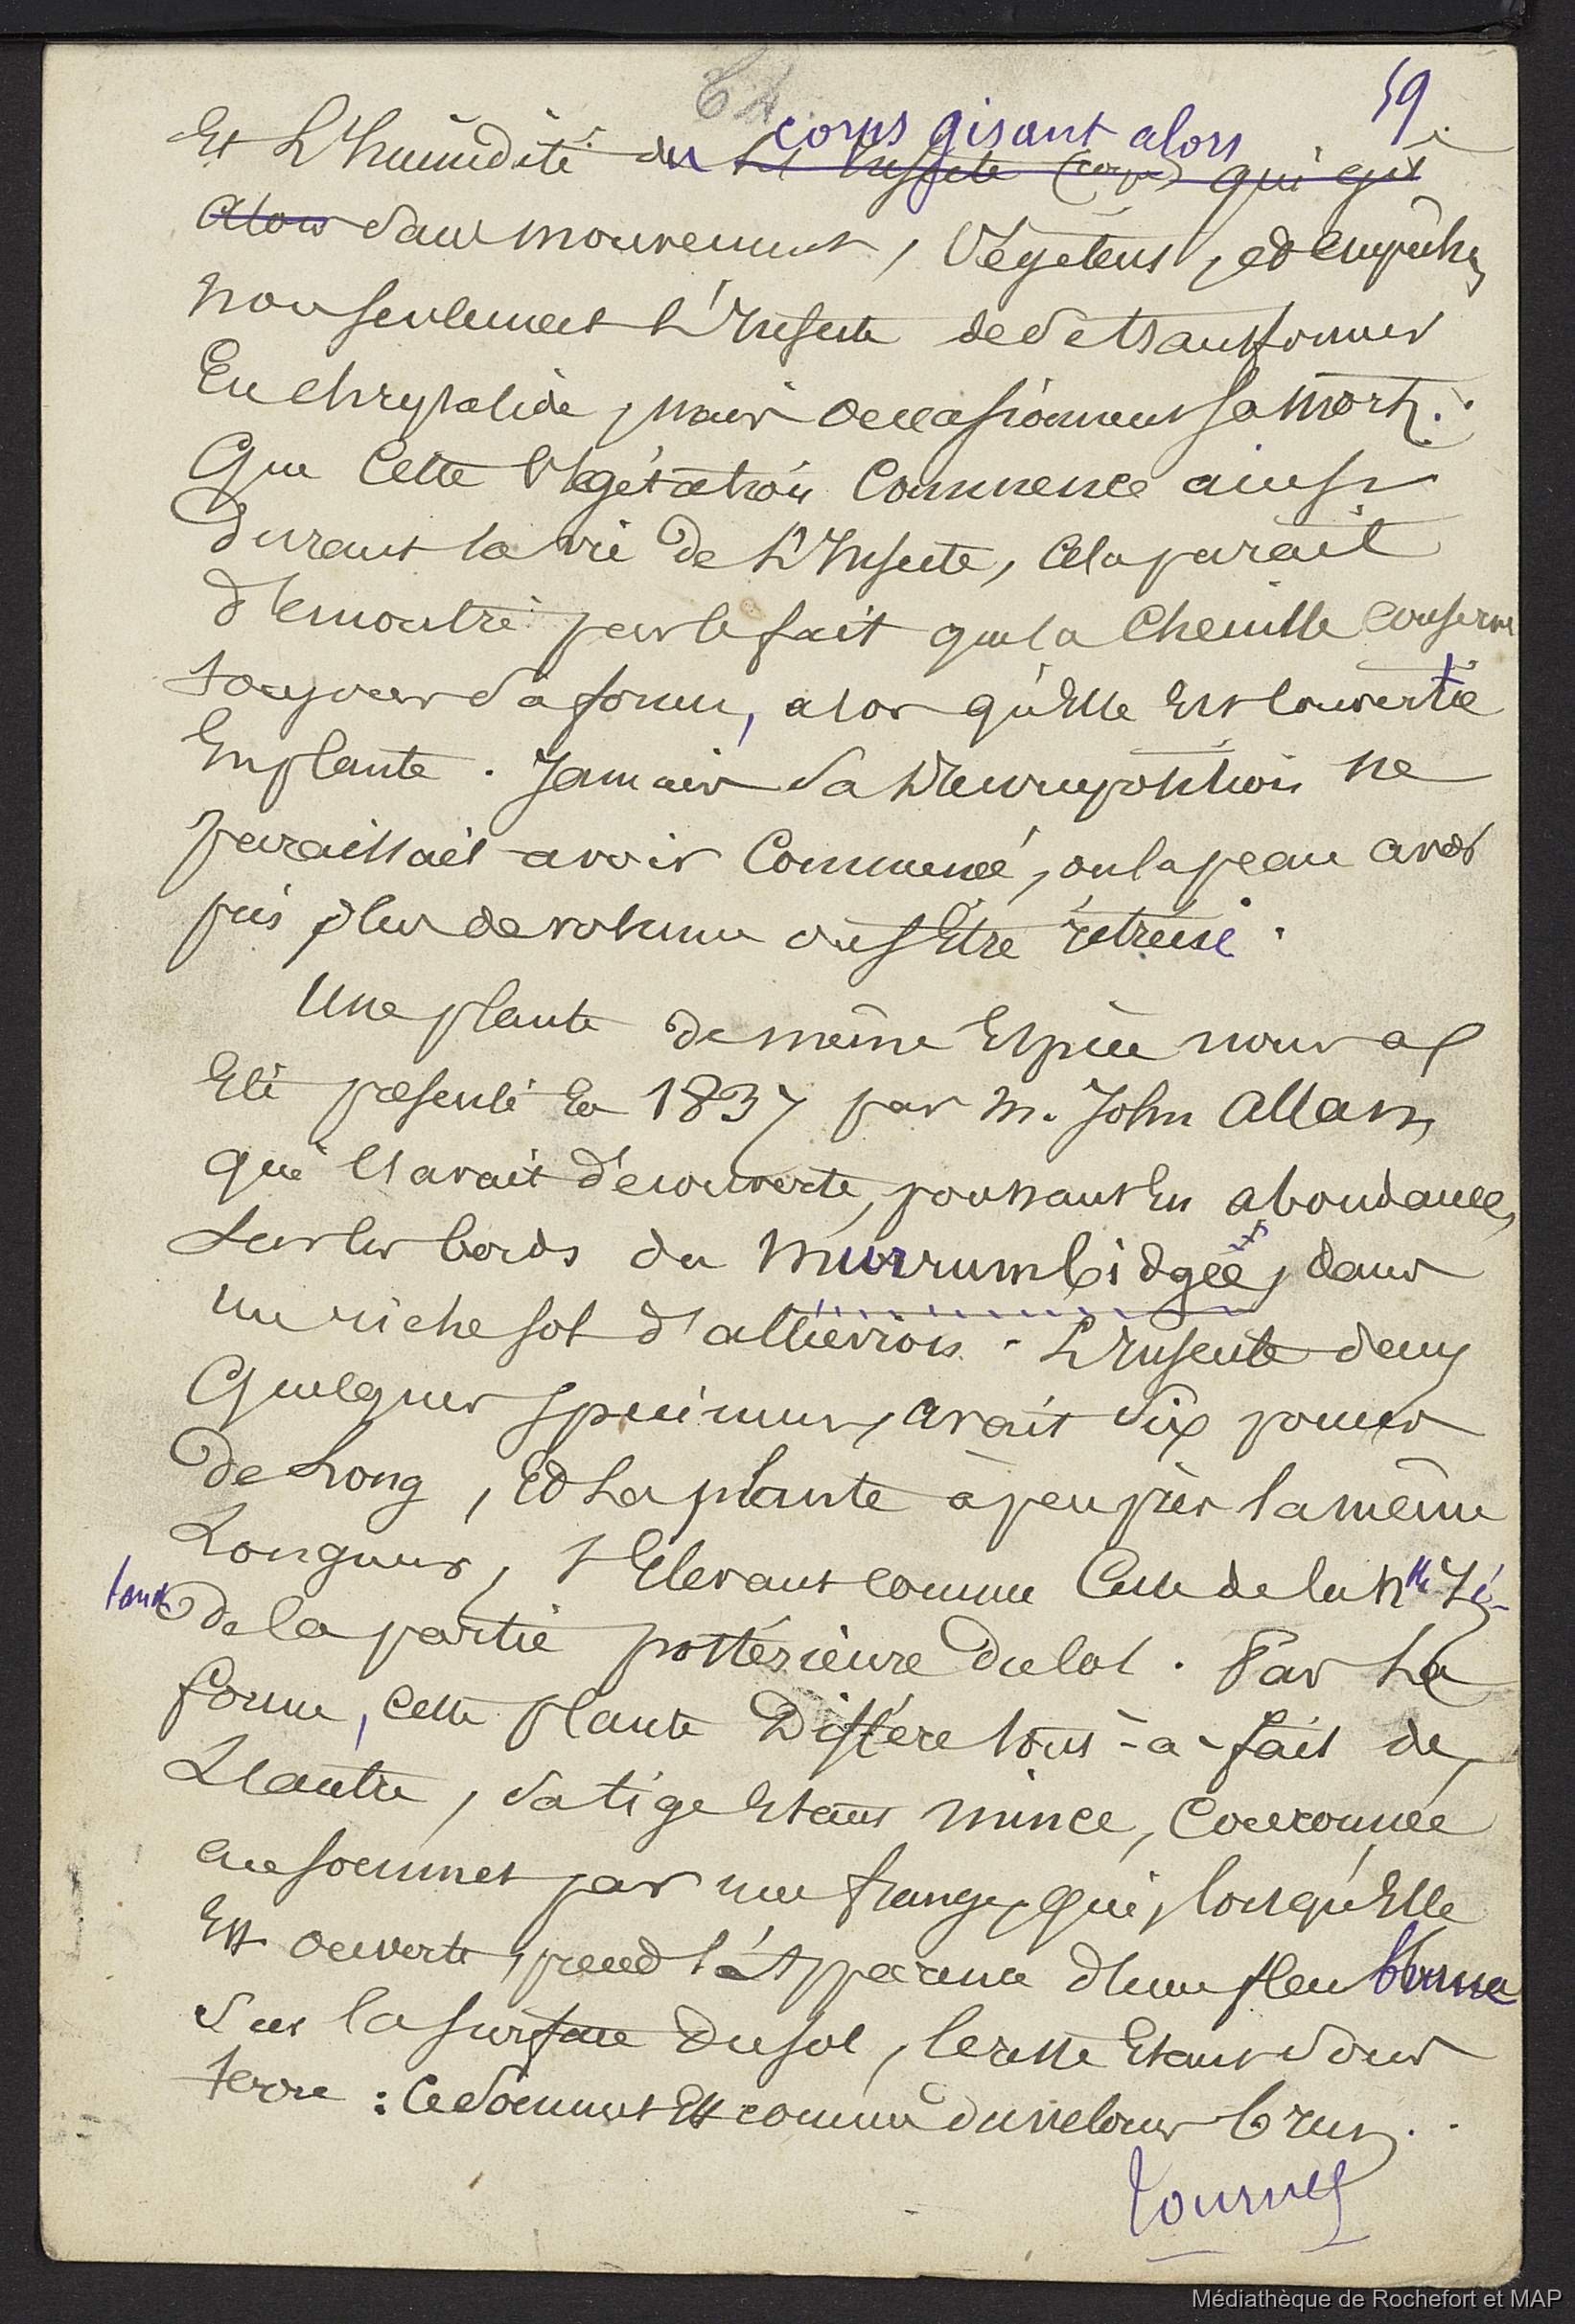 64
59
corps gisant alors
Et L'humidité du et l'insecte (corps) qui gît
alors sans mouvement, Végétens, et empêche
non seulement L'Insecte de se transformer
En chrysalide, mais occasionnent sa mort.
Que Cette Végétation Commence ainsi
durant la vie de L'Insecte, Cela parait
démontré par le fait que la Chenille Conserve
toujours sa forme, alors qu'Elle Est Convertie
En plante. Jamais sa Décomposition ne
paraissait avoir Commencé, ou la peau avoir
pris plus de volume ou s'Etre rétrécie.
Une plante de même Espèce nous a
Eté présenté En 1837 par M. John Allan,
qui l'avait découverte, poussant En abondance,
sur les bords du Murrumbidgée, dans
un riche sol d'alluvion. L'Insecte dans
Quelques spécimens, avait six pouces
De Long, Et La plante à peu près la même
Longueur, s'Elevant comme Celle de la Nlle Zé-
lande
de la partie postérieure du sol. Par La
forme, cette plante Diffère tout-à-fait de
L'autre, sa tige Etant mince, Couronnée
au sommet par une frange, qui, lorsqu'Elle
Est ouverte, prend l'Apparence d'une fleur brune
sur la surface du sol, le reste Etant sous
terre : Ce sommet Est comme du velours brun.
tournez
Médiathèque de Rochefort et MAP